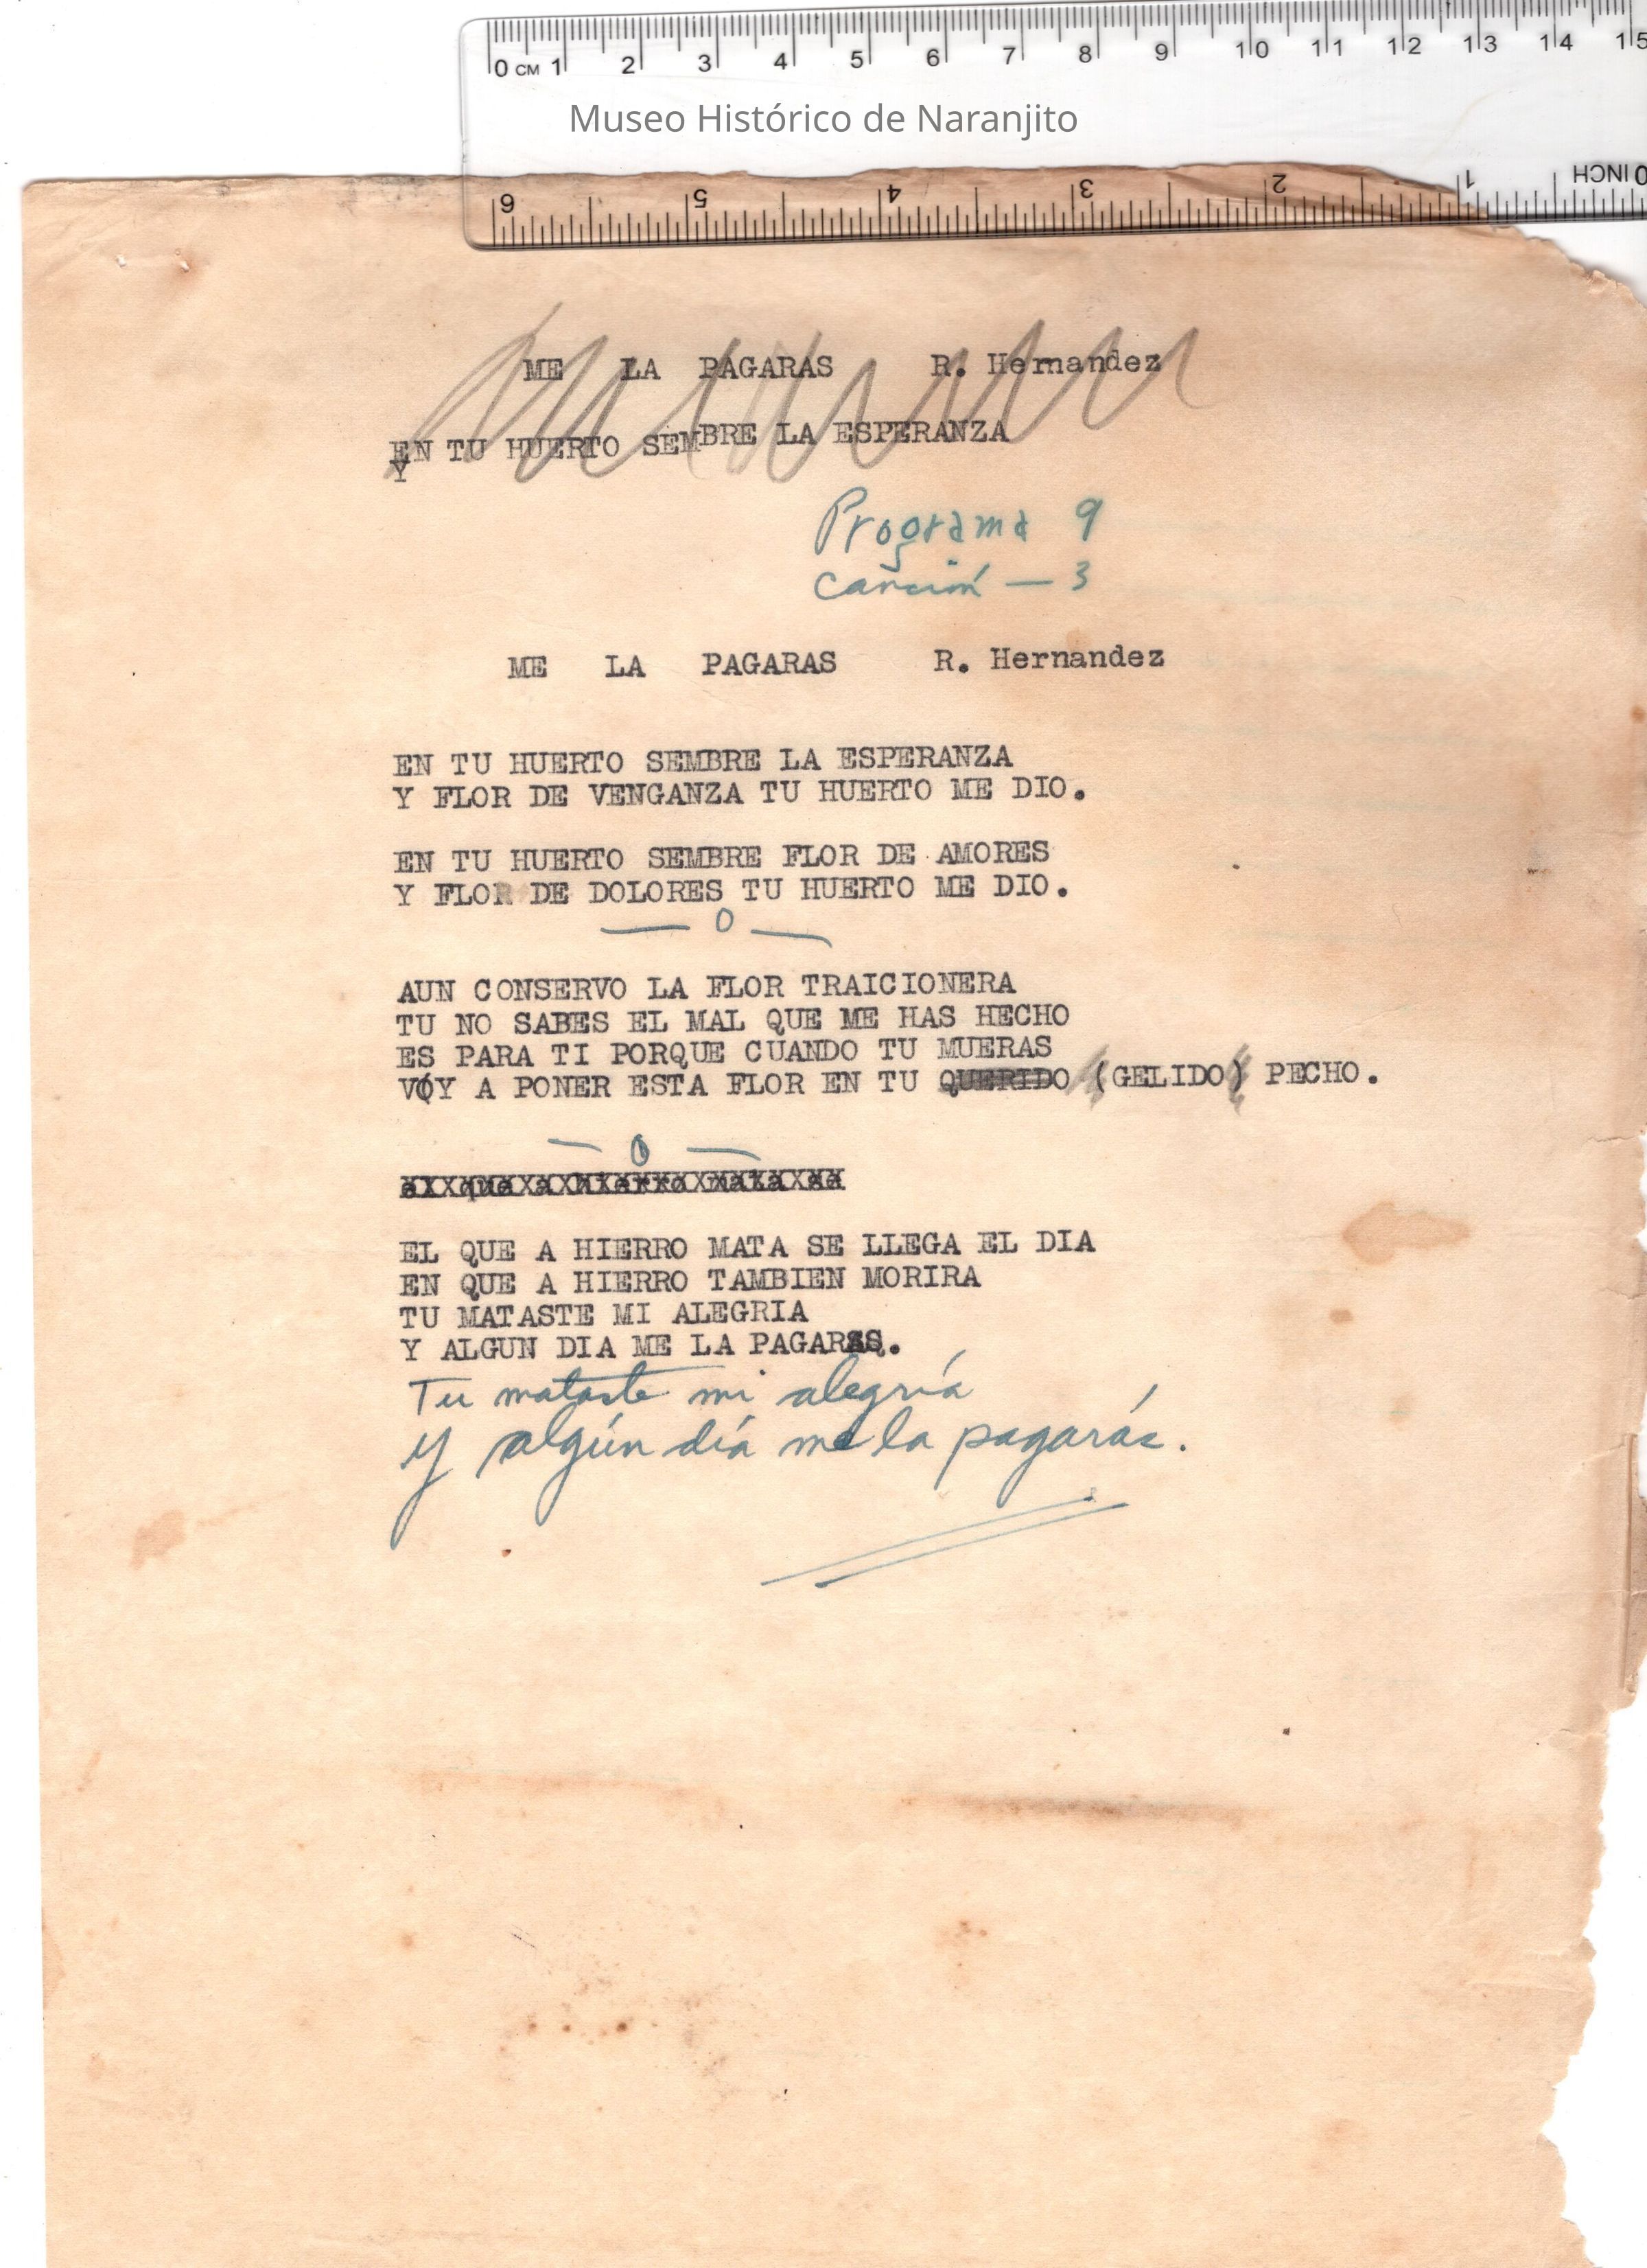 0 CM 1 2 3 4 5 6 7 8 9 10 11 12 13 14 15
Museo Histórico de Naranjito
6 5 4 3 2 1 0 INCH
ME LA PAGARAS R. Hernandez
EN TU HUERTO SEMBRE LA ESPERANZA
Y
Programa 9
Canción — 3
ME LA PAGARAS R. Hernandez
EN TU HUERTO SEMBRE LA ESPERANZA
Y FLOR DE VENGANZA TU HUERTO ME DIO.
EN TU HUERTO SEMBRE FLOR DE AMORES
Y FLOR DE DOLORES TU HUERTO ME DIO.
— O —
AUN CONSERVO LA FLOR TRAICIONERA
TU NO SABES EL MAL QUE ME HAS HECHO
ES PARA TI PORQUE CUANDO TU MUERAS
VOY A PONER ESTA FLOR EN TU QUERIDO (GELIDO) PECHO.
— O —
EL QUE A HIERRO MATA SE LLEGA EL DIA
EN QUE A HIERRO TAMBIEN MORIRA
TU MATASTE MI ALEGRIA
Y ALGUN DIA ME LA PAGARAS.
Tu mataste mi alegría
y algún día me la pagarás.